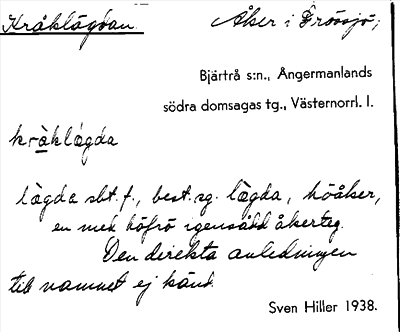 Kråklägdan. Åker i Frössjö;
Bjärtrå s:n., Ångermanlands
södra domsagas tg., Västernorrl. l.
kråklägda
lägda slt. f., best. sg. lägda, höåker,
en med höfrö igensådd åkerteg.
Den direkta anledningen
till namnet ej känd.
Sven Hiller 1938.